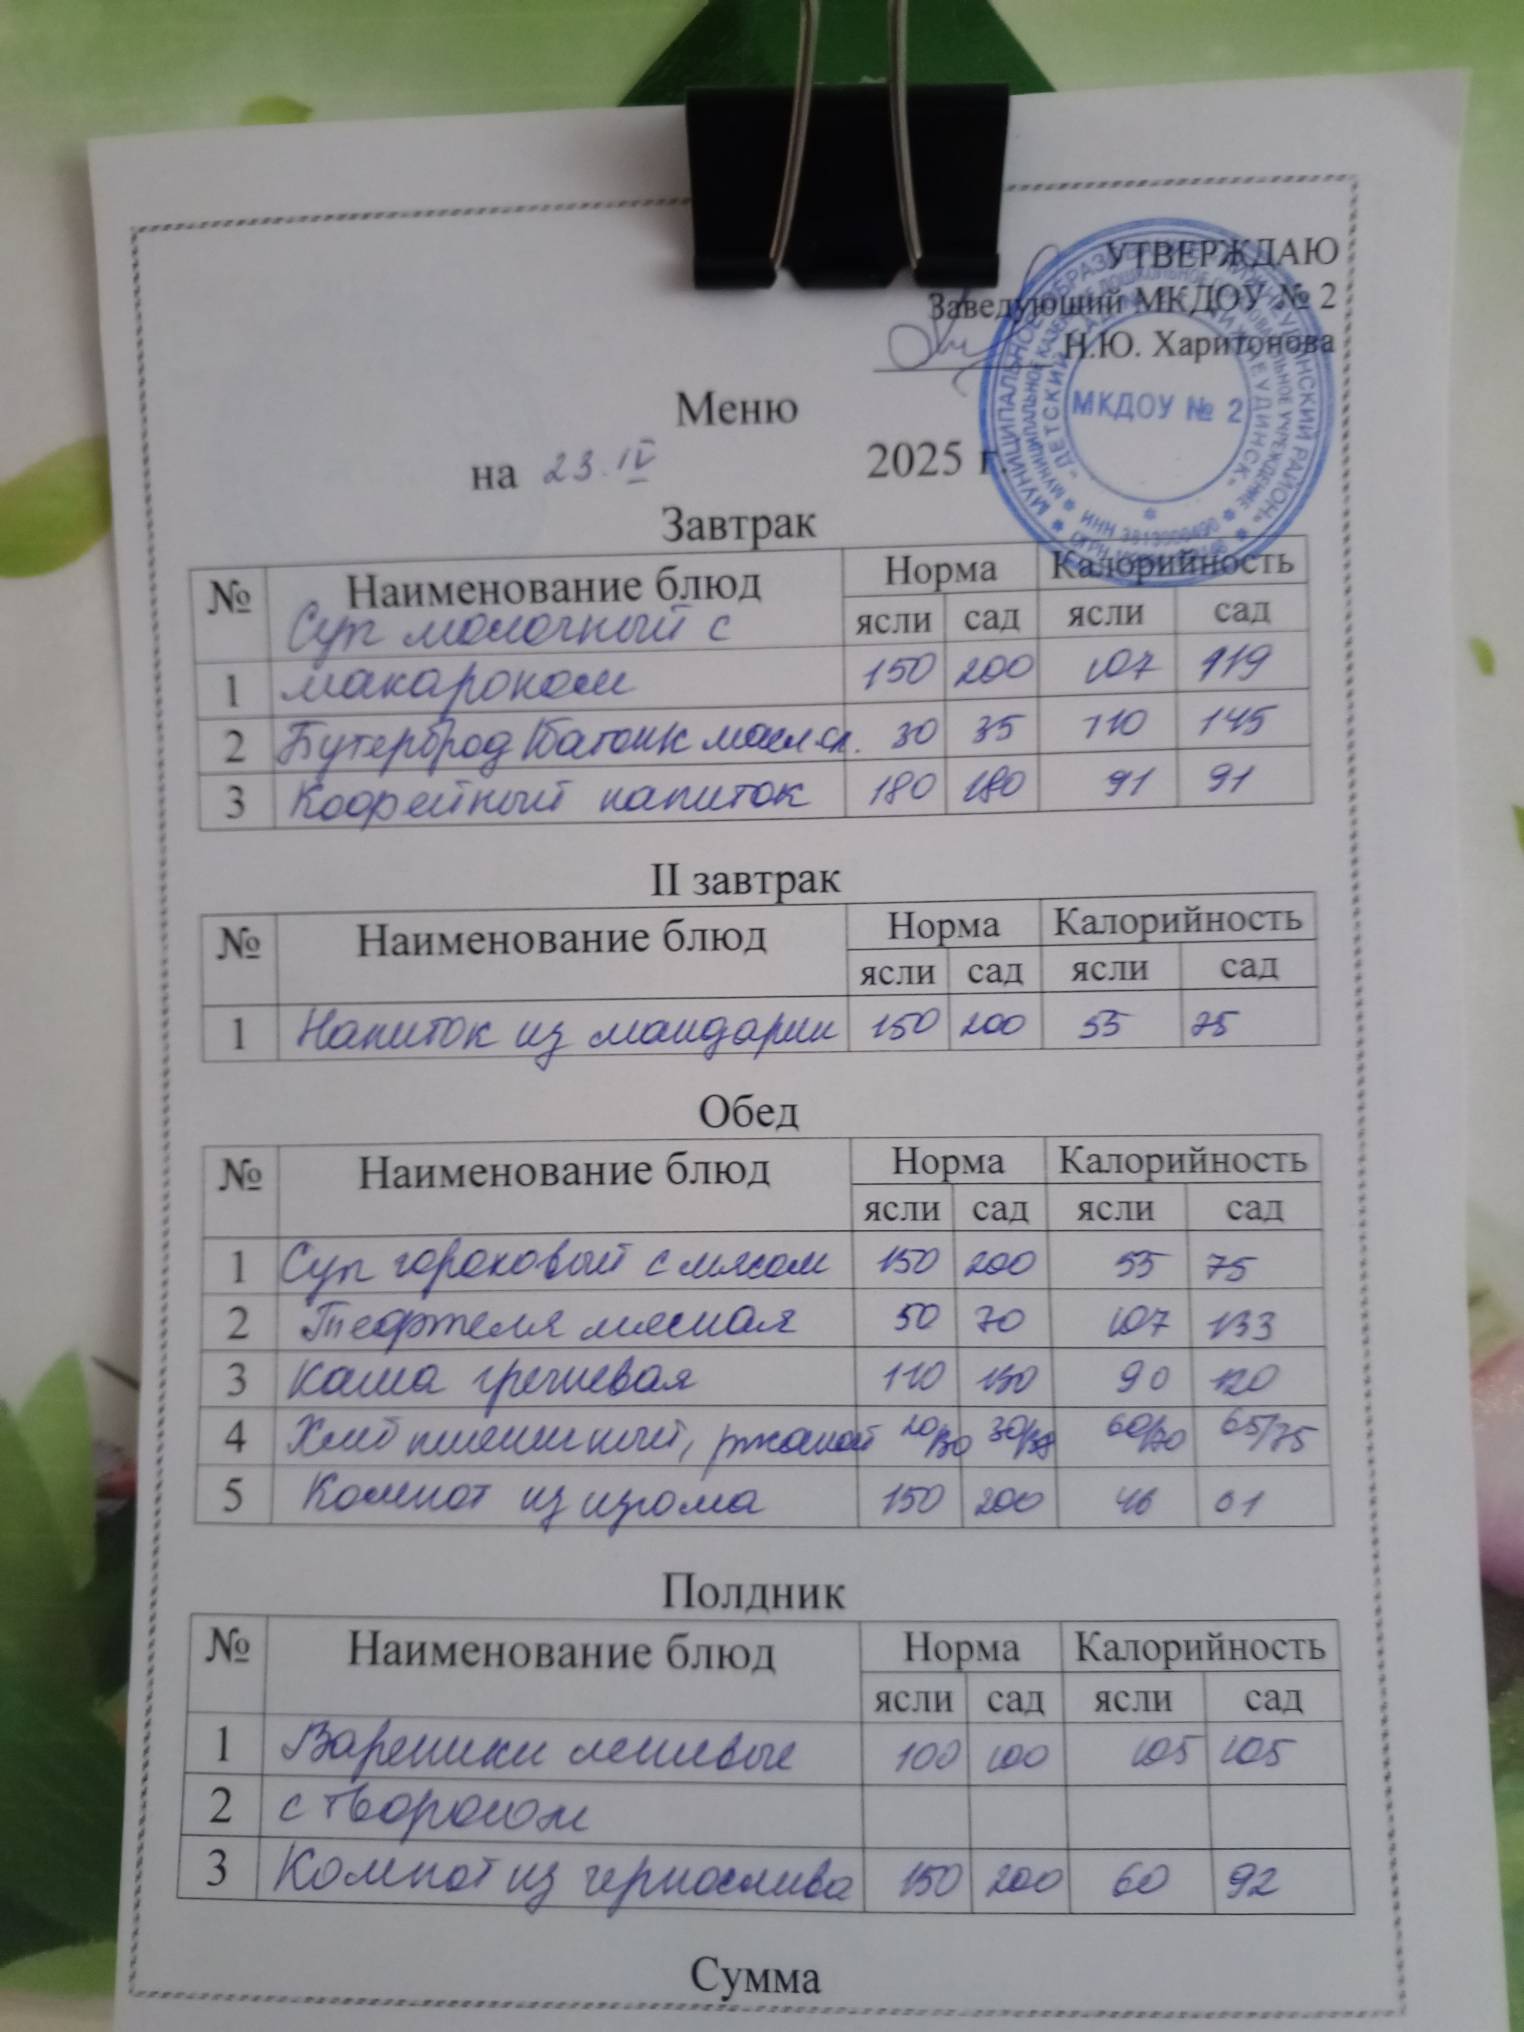 УТВЕРЖДАЮ
Заведующий МКДОУ № 2
Н.Ю. Харитонова
МКДОУ № 2
Меню
на 23.IV 2025 г.
Завтрак
№ Наименование блюд Норма Калорийность
ясли сад ясли сад
Суп молочный с
1 макароном 150 200 107 119
2 Бутерброд масл.сл. 30 35 110 145
3 Кофейный напиток 180 180 91 91
II завтрак
№ Наименование блюд Норма Калорийность
ясли сад ясли сад
1 Напиток из мандарин 150 200 55 75
Обед
№ Наименование блюд Норма Калорийность
ясли сад ясли сад
1 Суп гороховый с мясом 150 200 55 75
2 Тефтеля мясная 50 70 107 133
3 Каша гречневая 110 130 90 120
4 Хлеб пшеничный, ржаной 20/30 60/70 65/75
5 Компот из изюма 150 200 46 61
Полдник
№ Наименование блюд Норма Калорийность
ясли сад ясли сад
1 Вареники ленивые 100 100 105 105
2 с творогом
3 Компот из чернослива 150 200 60 92
Сумма